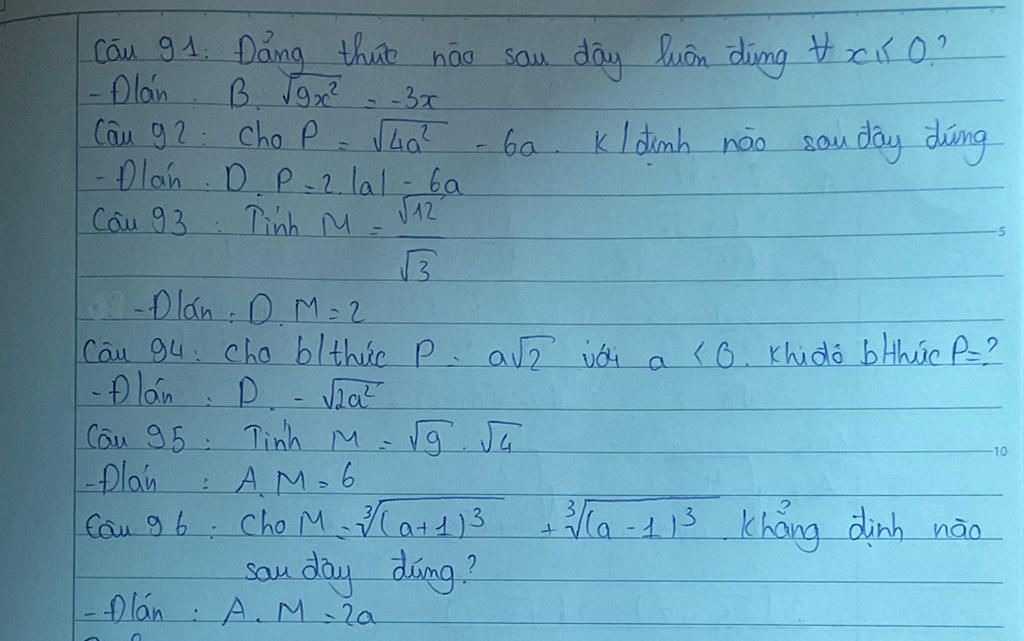 Câu 91: Đẳng thức nào sau đây luôn đúng ∀ x ≤ 0?
- Đ/án : B. √9x² = -3x
Câu 92 : Cho P = √4a² - 6a. K/định nào sau đây đúng
- Đ/án : D. P = 2.|a| - 6a
Câu 93 : Tính M = √12
√3
- Đ/án : D. M = 2
Câu 94 : Cho b/thức P = a√2 với a < 0. Khi đó b/thức P = ?
- Đ/án : D. - √2a²
Câu 95 : Tính M = √9 . √4
- Đ/án : A. M = 6
Câu 96 : Cho M = ∛(a+1)³ + ∛(a-1)³. Khẳng định nào
sau đây đúng?
- Đ/án : A. M = 2a
5
10